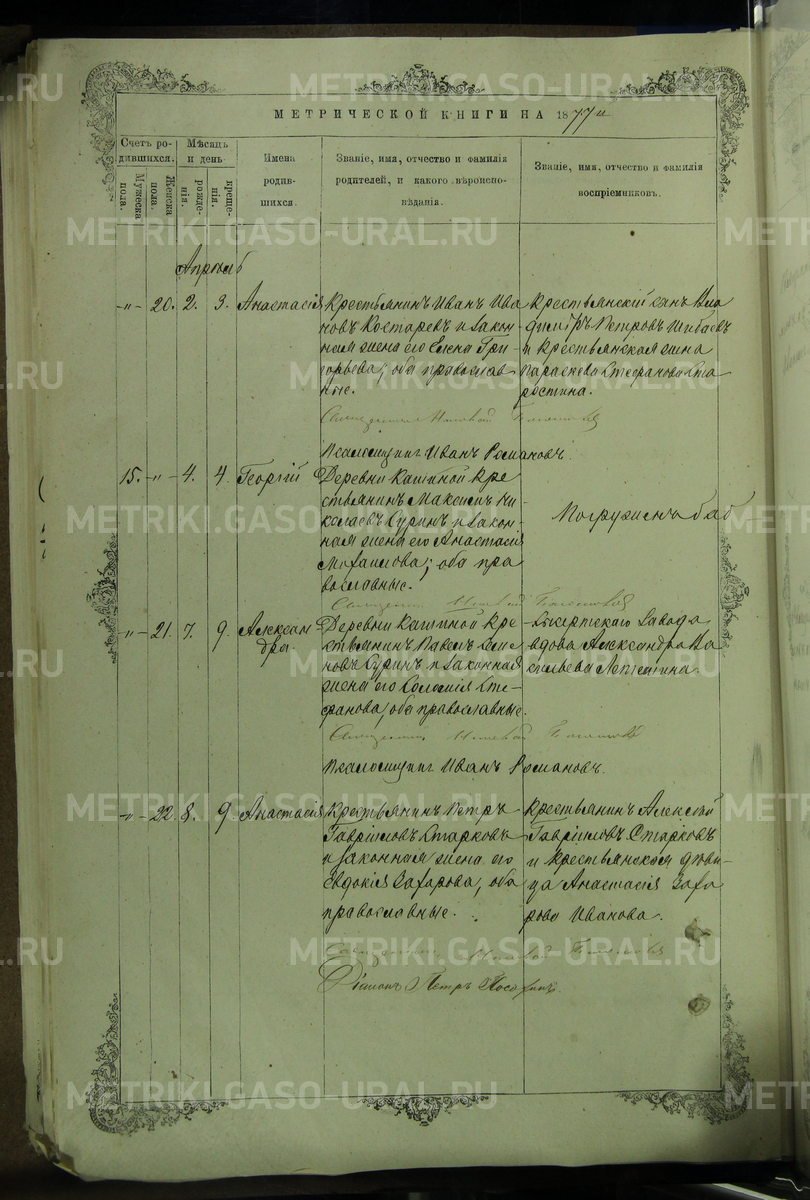 МЕТРИЧЕСКОЙ КНИГИ НА 1877 й
Счетъ ро-
дившихся.
Мужеска
пола.
Женска
пола.
Мѣсяцъ
и день
рожде-
нія.
креще-
нія.
Имена
родив-
шихся.
Званіе, имя, отчество и фамилія
родителей, и какого вѣроиспо-
вѣданія.
Званіе, имя, отчество и фамилія
воспріемниковъ.
Апрѣль
-"- 20. 2. 3. Анастасія
Крестьянинъ Иванъ Ива
новъ Костаревъ и закон-
ная жена его Елена Гри
горьева; оба православ
ные.
Крестьянскій сынъ Вла
димiръ Петровъ Шибаевъ
и крестьянская жена
Параскева Стефанова Ста
ростина.
Священникъ
Псаломщикъ Иванъ Романовъ.
15. -"- 4. 4. Георгій
Деревни Кашиной кре
стьянинъ Максимъ Ни
колаевъ Суринъ и закон-
ная жена его Анастасія
Михаилова; оба пра
вославные.
Погруженъ баб
Священникъ
-"- 21. 7. 9. Алексан
дра.
Деревни Кашиной кре
стьянинъ Павелъ Семе
новъ Суринъ и законная
жена его Соломія Сте-
фанова, оба православные.
Сысертскаго Завода
вдова Александра Ва
сильева Летемина.
Священникъ
Псаломщикъ Иванъ Романовъ.
-"- 22. 8. 9. Анастасія
Крестьянинъ Петръ
Гавріиловъ Старковъ
и законная жена его
Евдокія Захарова, оба
православные.
Крестьянинъ Алексѣй
Гавріиловъ Старковъ
и крестьянская дѣви-
ца Анастасія Заха
рова Иванова.
Священникъ
Діаконъ Петръ
METRIKI.GASO-URAL.RU